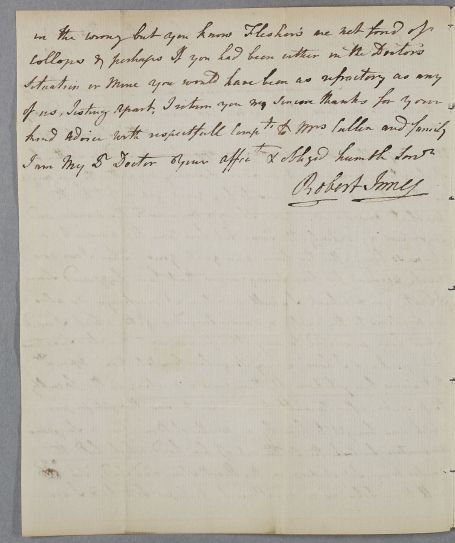 in the wrong but you know Flesher's are not fond of
Collops & perhaps If you had been either in the Doctor's
Situation or Mine you would have been as refractory as any
of us, Jesting apart, I return you my Sincere thanks for your
kind advice with respectfull Compts to Mrs Cullen and family
I am My Dr Doctor your affte & Obliged humble Servt
Robert Innes